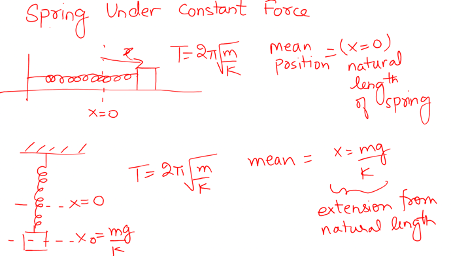 Spring Under Constant Force
x
T=2π√m/K
mean position = (x=0) natural length of spring
x=0
T=2π√m/K
mean = x=mg/K
x=0
x₀=mg/K
extension from natural length